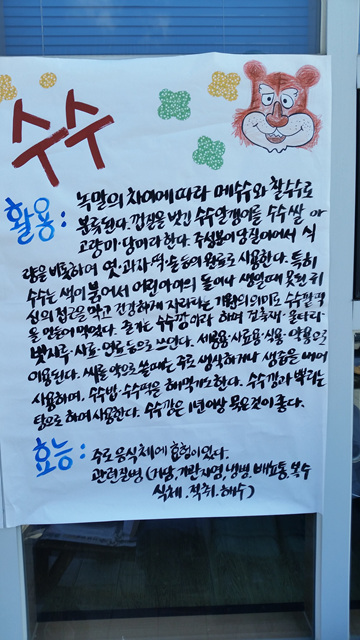 수수
활용: 녹말의 차이에 따라 메수수와 찰수수로
분류된다. 껍질을 벗긴 수수알갱이를 수수쌀 아
고량미·당미라 한다. 주성분이 당질이어서 식
량을 비롯하며 엿·과자·떡·술 등의 원료로 사용한다. 특히
수수는 색이 붉어서 어린아이의 돌이나 생일때 못된 귀
신의 접근을 막고 건강하게 자라라는 기원의 의미로 수수팥떡
을 만들어 먹었다. 줄기는 수수깡이라 하며 건축재·울타리
빗자루·사료·연료 등으로 쓰인다. 세공용·사료용·식용·약용으로
이용된다. 씨를 약으로 쓸때는 주로 생식하거나 생즙을 내어
사용하며, 수수밥·수수떡을 해먹기도 한다. 수수깡과 뿌리는
탕으로 하여 사용한다. 수수깡은 1년이상 묵은것이 좋다.
효능: 주로 음식체에 효험이 있다.
관련질병 (기남, 기관지염, 냉병, 배포통, 복수
식체, 적취, 해수)